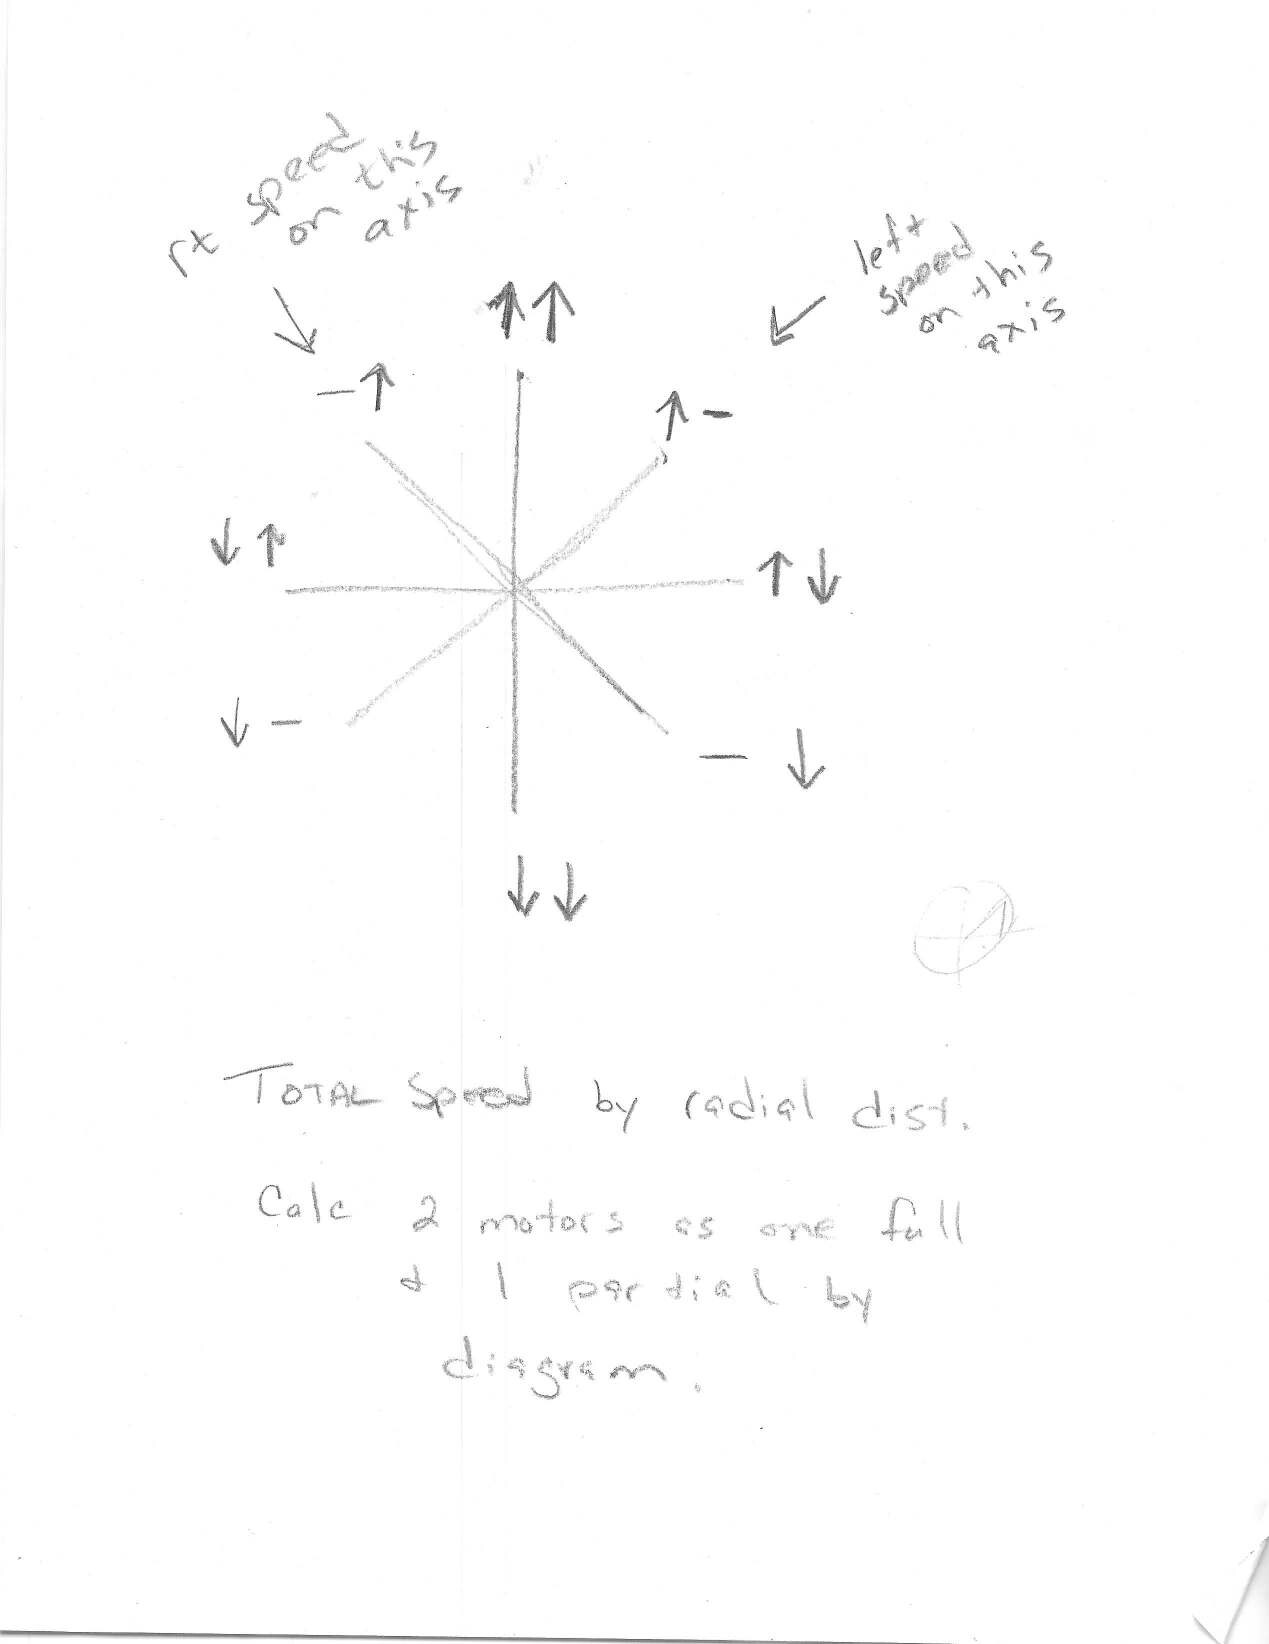 rt speed
on this
axis
left
speed
on this
axis
-↑
↑↑
↑-
↓↑
↑↓
↓-
-↓
↓↓
TOTAL Speed by radial dist.
Calc 2 motors as one full
+ 1 partial by
diagram.